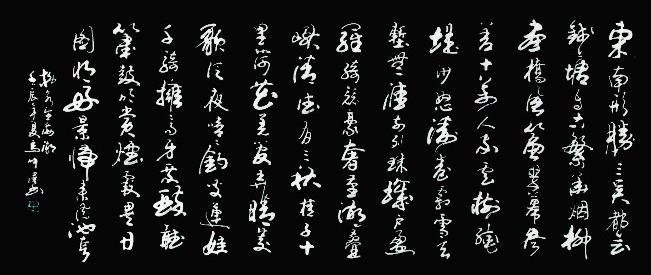 東南形勝三吳都會
錢塘自古繁華烟柳
畫橋風簾翠幕參
差十萬人家雲樹繞
堤沙怒濤卷霜雪天
塹無涯市列珠璣戶盈
羅綺競豪奢重湖疊
巘清佳有三秋桂子十
里荷花羌管弄晴菱
歌泛夜嬉嬉釣叟蓮娃
千騎擁高牙乘醉聽
簫鼓吟賞煙霞異日
圖將好景歸去鳳池誇
柳永望海潮
壬辰年夏